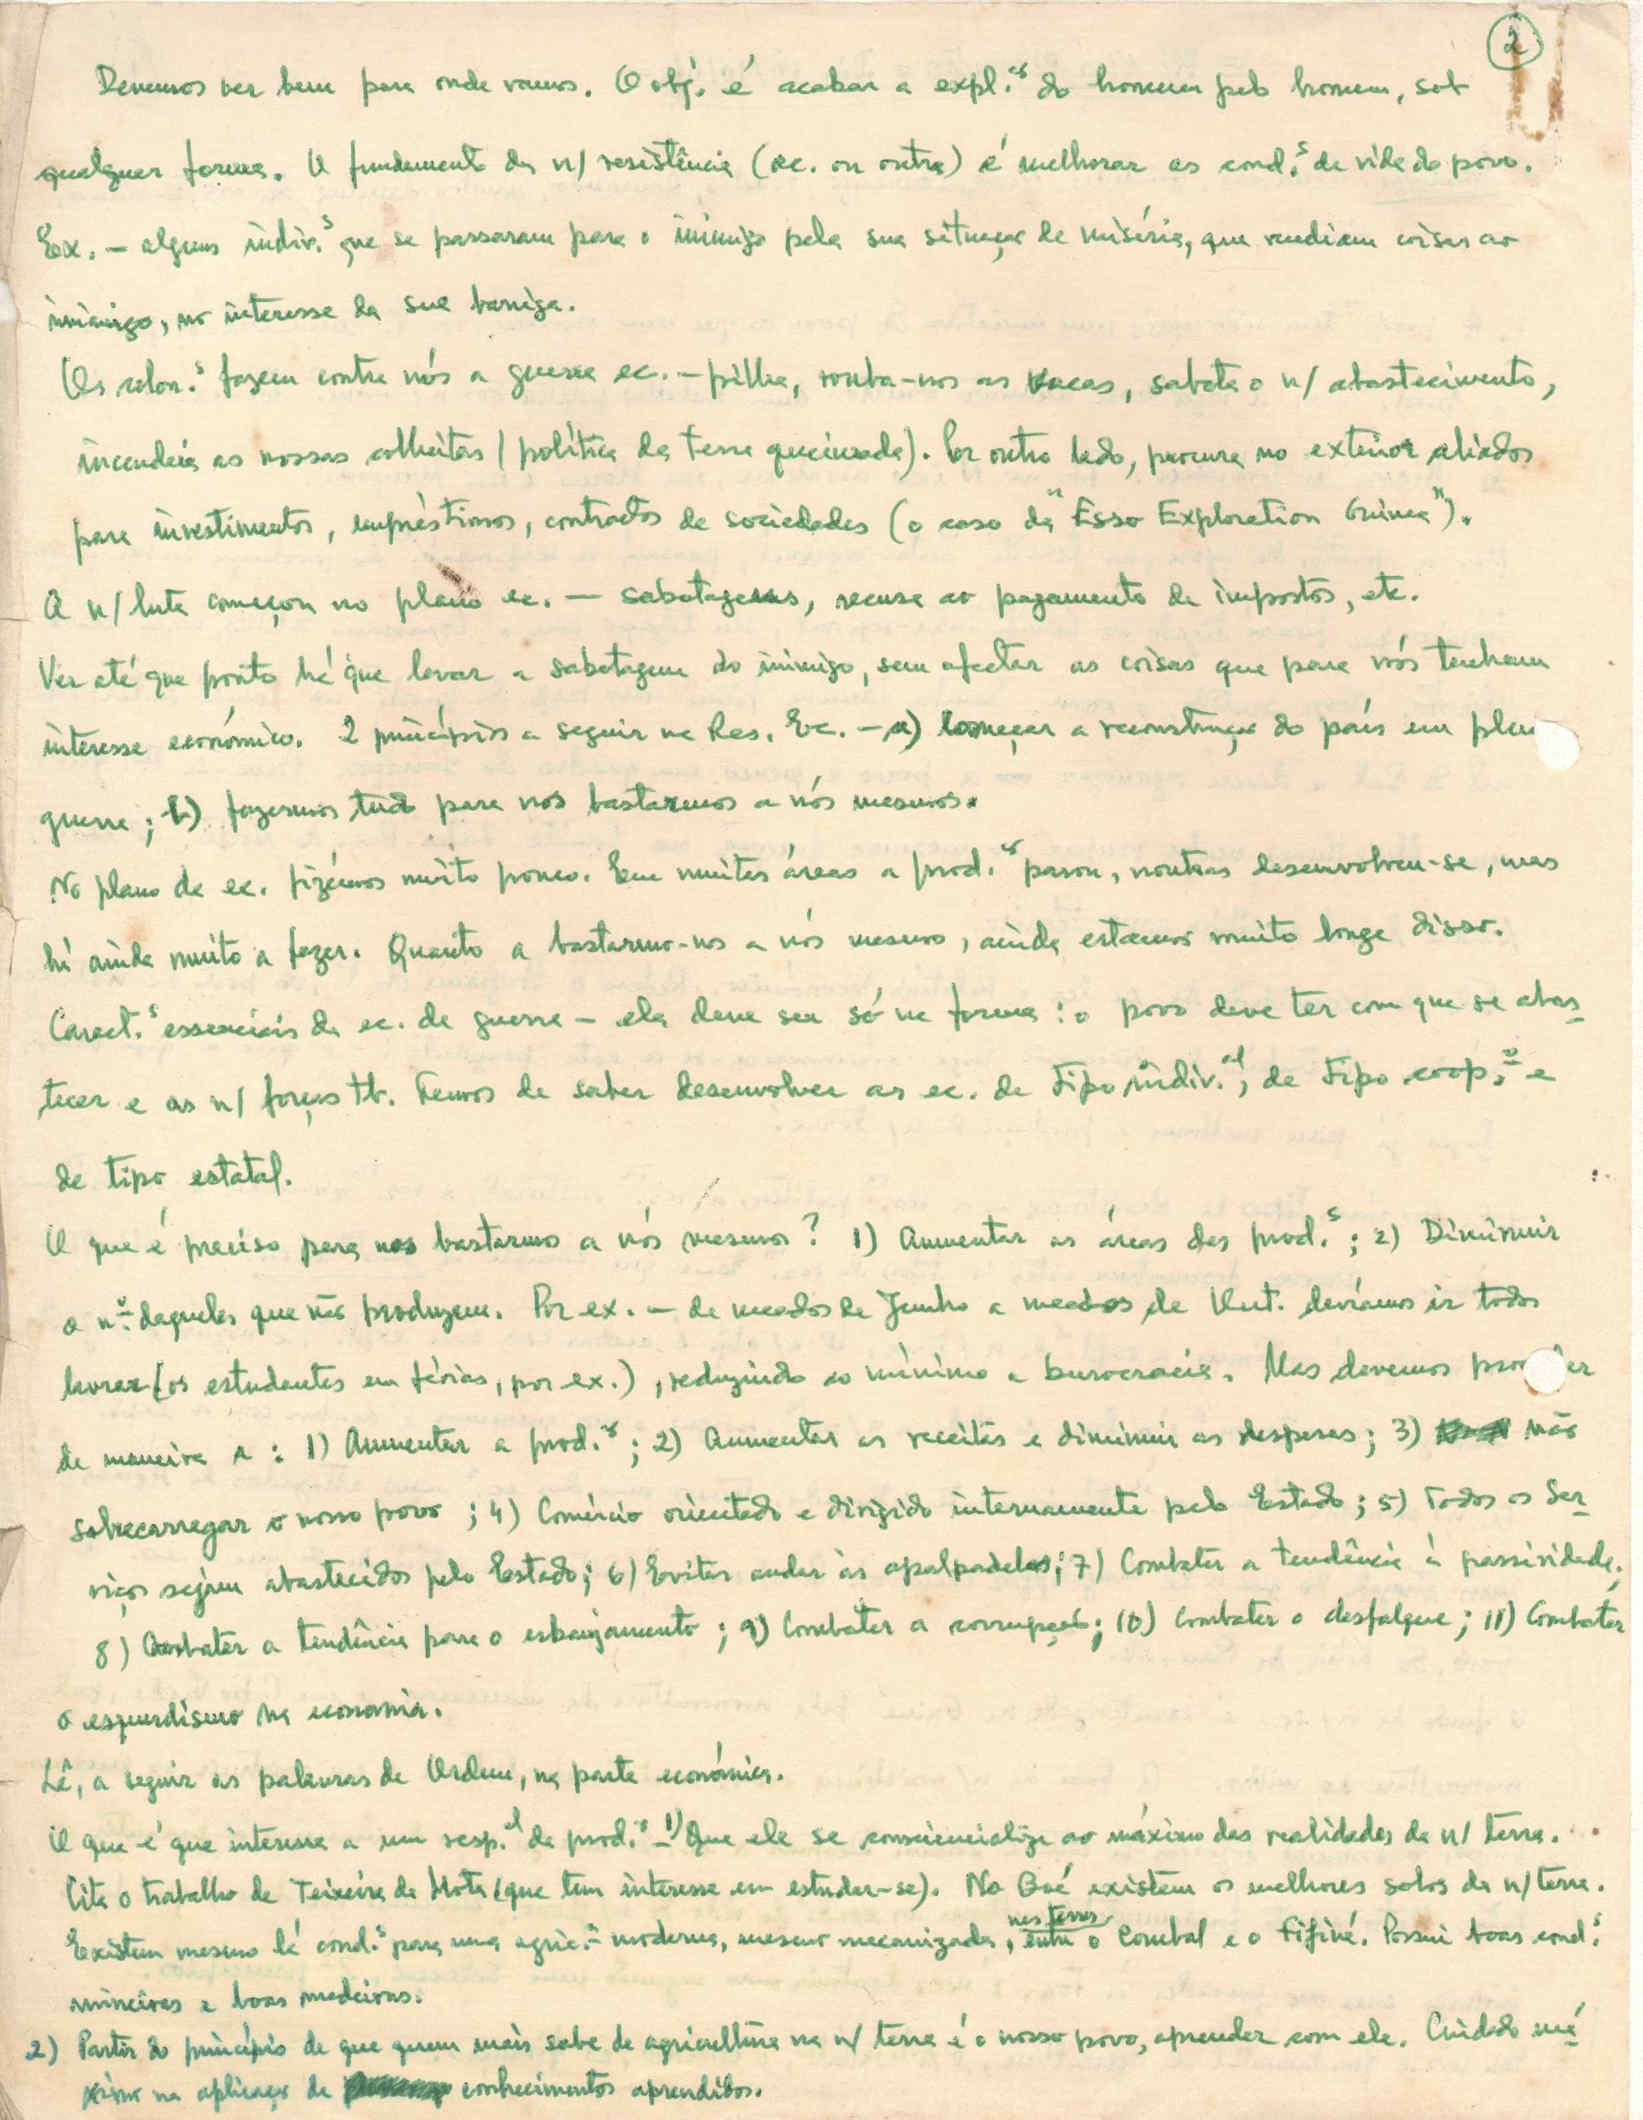 2
Devemos ver bem para onde vamos. O obj. é acabar a expl.ção do homem pelo homem, sob
qualquer forma. O fundamento da n/ resistência (ec. ou outra) é melhorar as cond.s de vida do povo.
Ex. — alguns indiv.s que se passaram para o inimigo pela sua situação de miséria, que vendiam coisas ao
inimigo, no interesse da sua barriga.
Os colon.s fazem contra nós a guerra ec. — pilha, rouba-nos as vacas, sabota o n/ abastecimento,
incendeia as nossas colheitas (política da terra queimada). Por outro lado, procura no exterior aliados
para investimentos, empréstimos, contractos de sociedades (o caso da "Esso Exploration Guinea").
A n/ luta começou no plano ec. — sabotagens, recusa ao pagamento de impostos, etc.
Ver até que ponto há que levar a sabotagem do inimigo, sem afectar as coisas que para nós tenham
interesse económico. 2 princípios a seguir na Res. Ec. — a) começar a reconstrução do país em plen
guerra; b) fazermos tudo para nos bastarmos a nós mesmos.
No plano da ec. fizémos muito pouco. Em muitas áreas a prod.ção parou, noutras desenvolveu-se, mas
há ainda muito a fazer. Quanto a bastarmo-nos a nós mesmos, ainda estamos muito longe disso.
Caract.s essenciais da ec. de guerra — ela deve ser só na forma: o povo deve ter com que se abas-
tecer e as n/ forças tb. Temos de saber desenvolver as ec. de tipo indiv.al, de tipo coop.o e
de tipo estatal.
O que é preciso para nos bastarmos a nós mesmos? 1) Aumentar as áreas das prod.s; 2) Diminuir
o n.º daqueles que não produzem. Por ex. — de meados de Junho a meados de Out. devíamos ir todos
lavrar (os estudantes em férias, por ex.), reduzindo ao mínimo a burocracia. Mas devemos pro er
de maneira a: 1) Aumentar a prod.ção; 2) Aumentar as receitas e diminuir as despesas; 3) não
sobrecarregar o nosso povo; 4) Comércio orientado e dirigido internamente pelo Estado; 5) Todos os Ser-
viços sejam abastecidos pelo Estado; 6) Evitar andar às apalpadelas; 7) Combater a tendência à passividade;
8) Combater a tendência para o esbanjamento; 9) Combater a corrupção; 10) Combater o desfalque; 11) Combater
o esquerdismo na economia.
Lê, a seguir as palavras de Ordem, na parte económica.
O que é que interessa a um resp.el da prod.ão — 1) Que ele se consciencialize ao máximo das realidades da n/ terra.
Cita o trabalho de Teixeira da Mota (que tem interesse em estudar-se). No Boé existem os melhores solos da n/ terra.
Existem mesmo lá cond.s para uma agric.a moderna, mesmo mecanizada, nas terras entre o Corubal e o Fifiné. Possui boas cond.s
mineiras e boas madeiras.
2) Partir do princípio de que quem mais sabe de agricultura na n/ terra é o nosso povo, aprender com ele. Cuidado má-
ximo na aplicação de conhecimentos aprendidos.